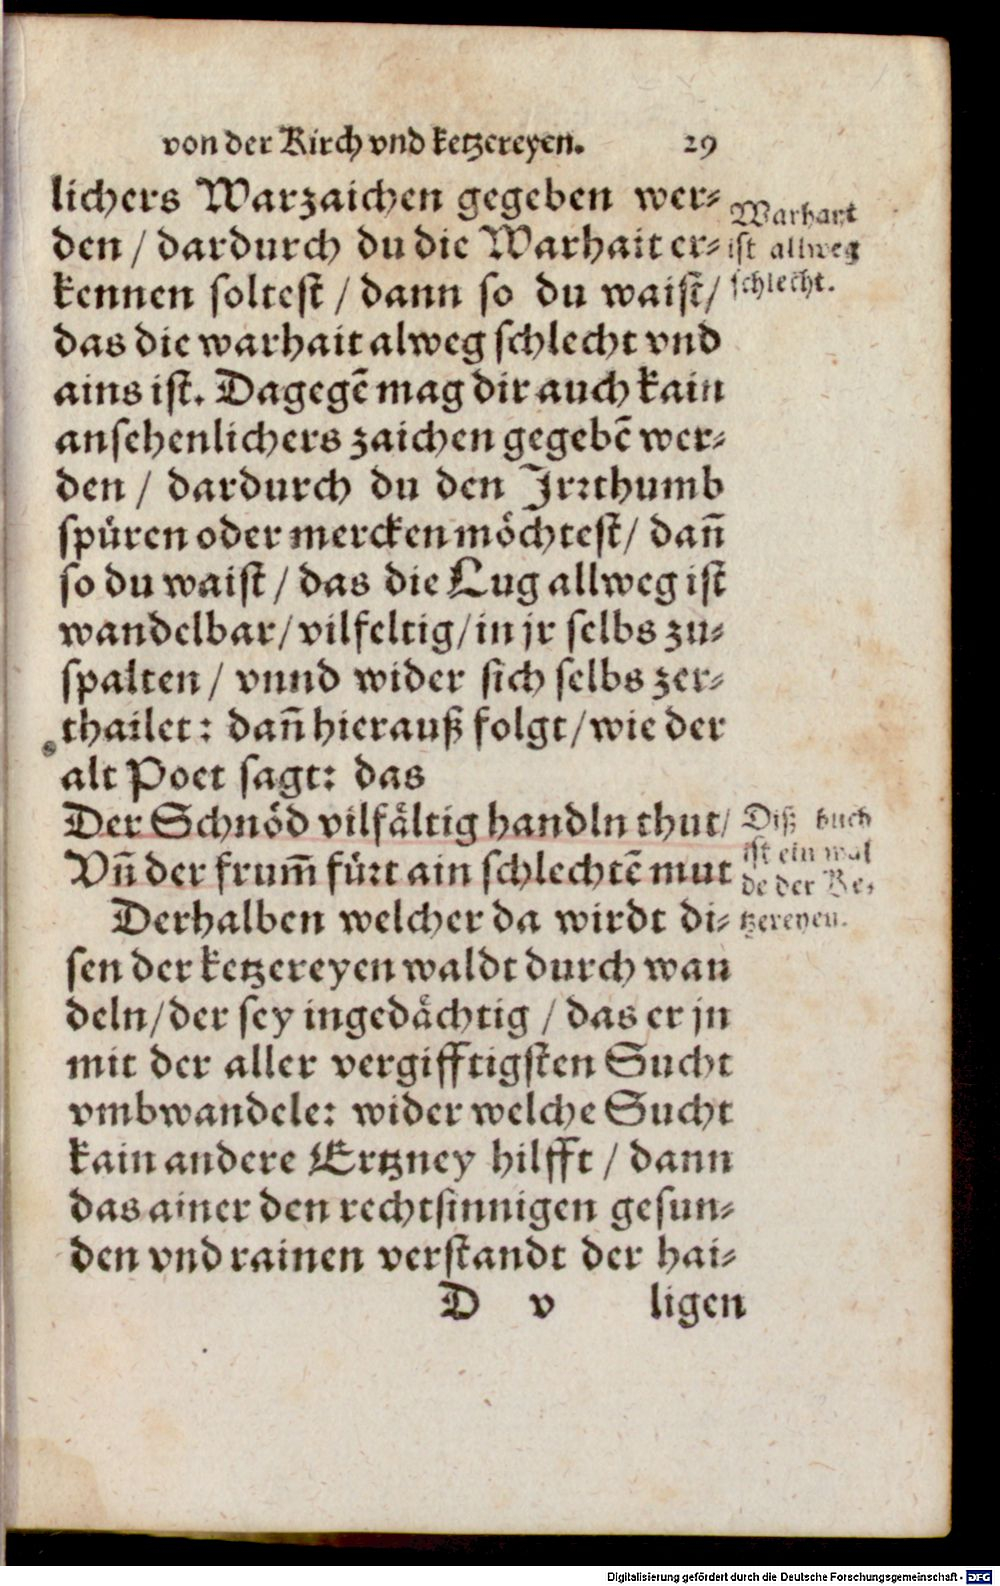 von der Kirch vnd ketzereyen. 29
lichers Warzaichen gegeben wer⸗
den / dardurch du die Warhait er⸗
kennen soltest / dann so du waist /
das die warhait alweg schlecht vnd
ains ist. Dagegē mag dir auch kain
ansehenlichers zaichen gegebē wer⸗
den / dardurch du den Jrꝛthumb
spüren oder mercken möchtest / dañ
so du waist / das die Lug allweg ist
wandelbar / vilfeltig / in jr selbs zu⸗
spalten / vnnd wider sich selbs zer⸗
thailet: dañ hierauß folgt / wie der
alt Poet sagt: das
Der Schnöd vilfältig handln thut /
Vñ der frum̃ füꝛt ain schlechtē mut
Derhalben welcher da wirdt di⸗
sen der ketzereyen waldt durch wan
deln / der sey ingedächtig / das er jn
mit der aller vergifftigsten Sucht
vmbwandele: wider welche Sucht
kain andere Ertzney hilfft / dann
das ainer den rechtsinnigen gesun⸗
den vnd rainen verstandt der hai⸗
D v ligen
Warhait
ist allweg
schlecht.
Diß buch
ist ein wal
de der Ke⸗
tzereyen.
Digitalisierung gefördert durch die Deutsche Forschungsgemeinschaft - DFG